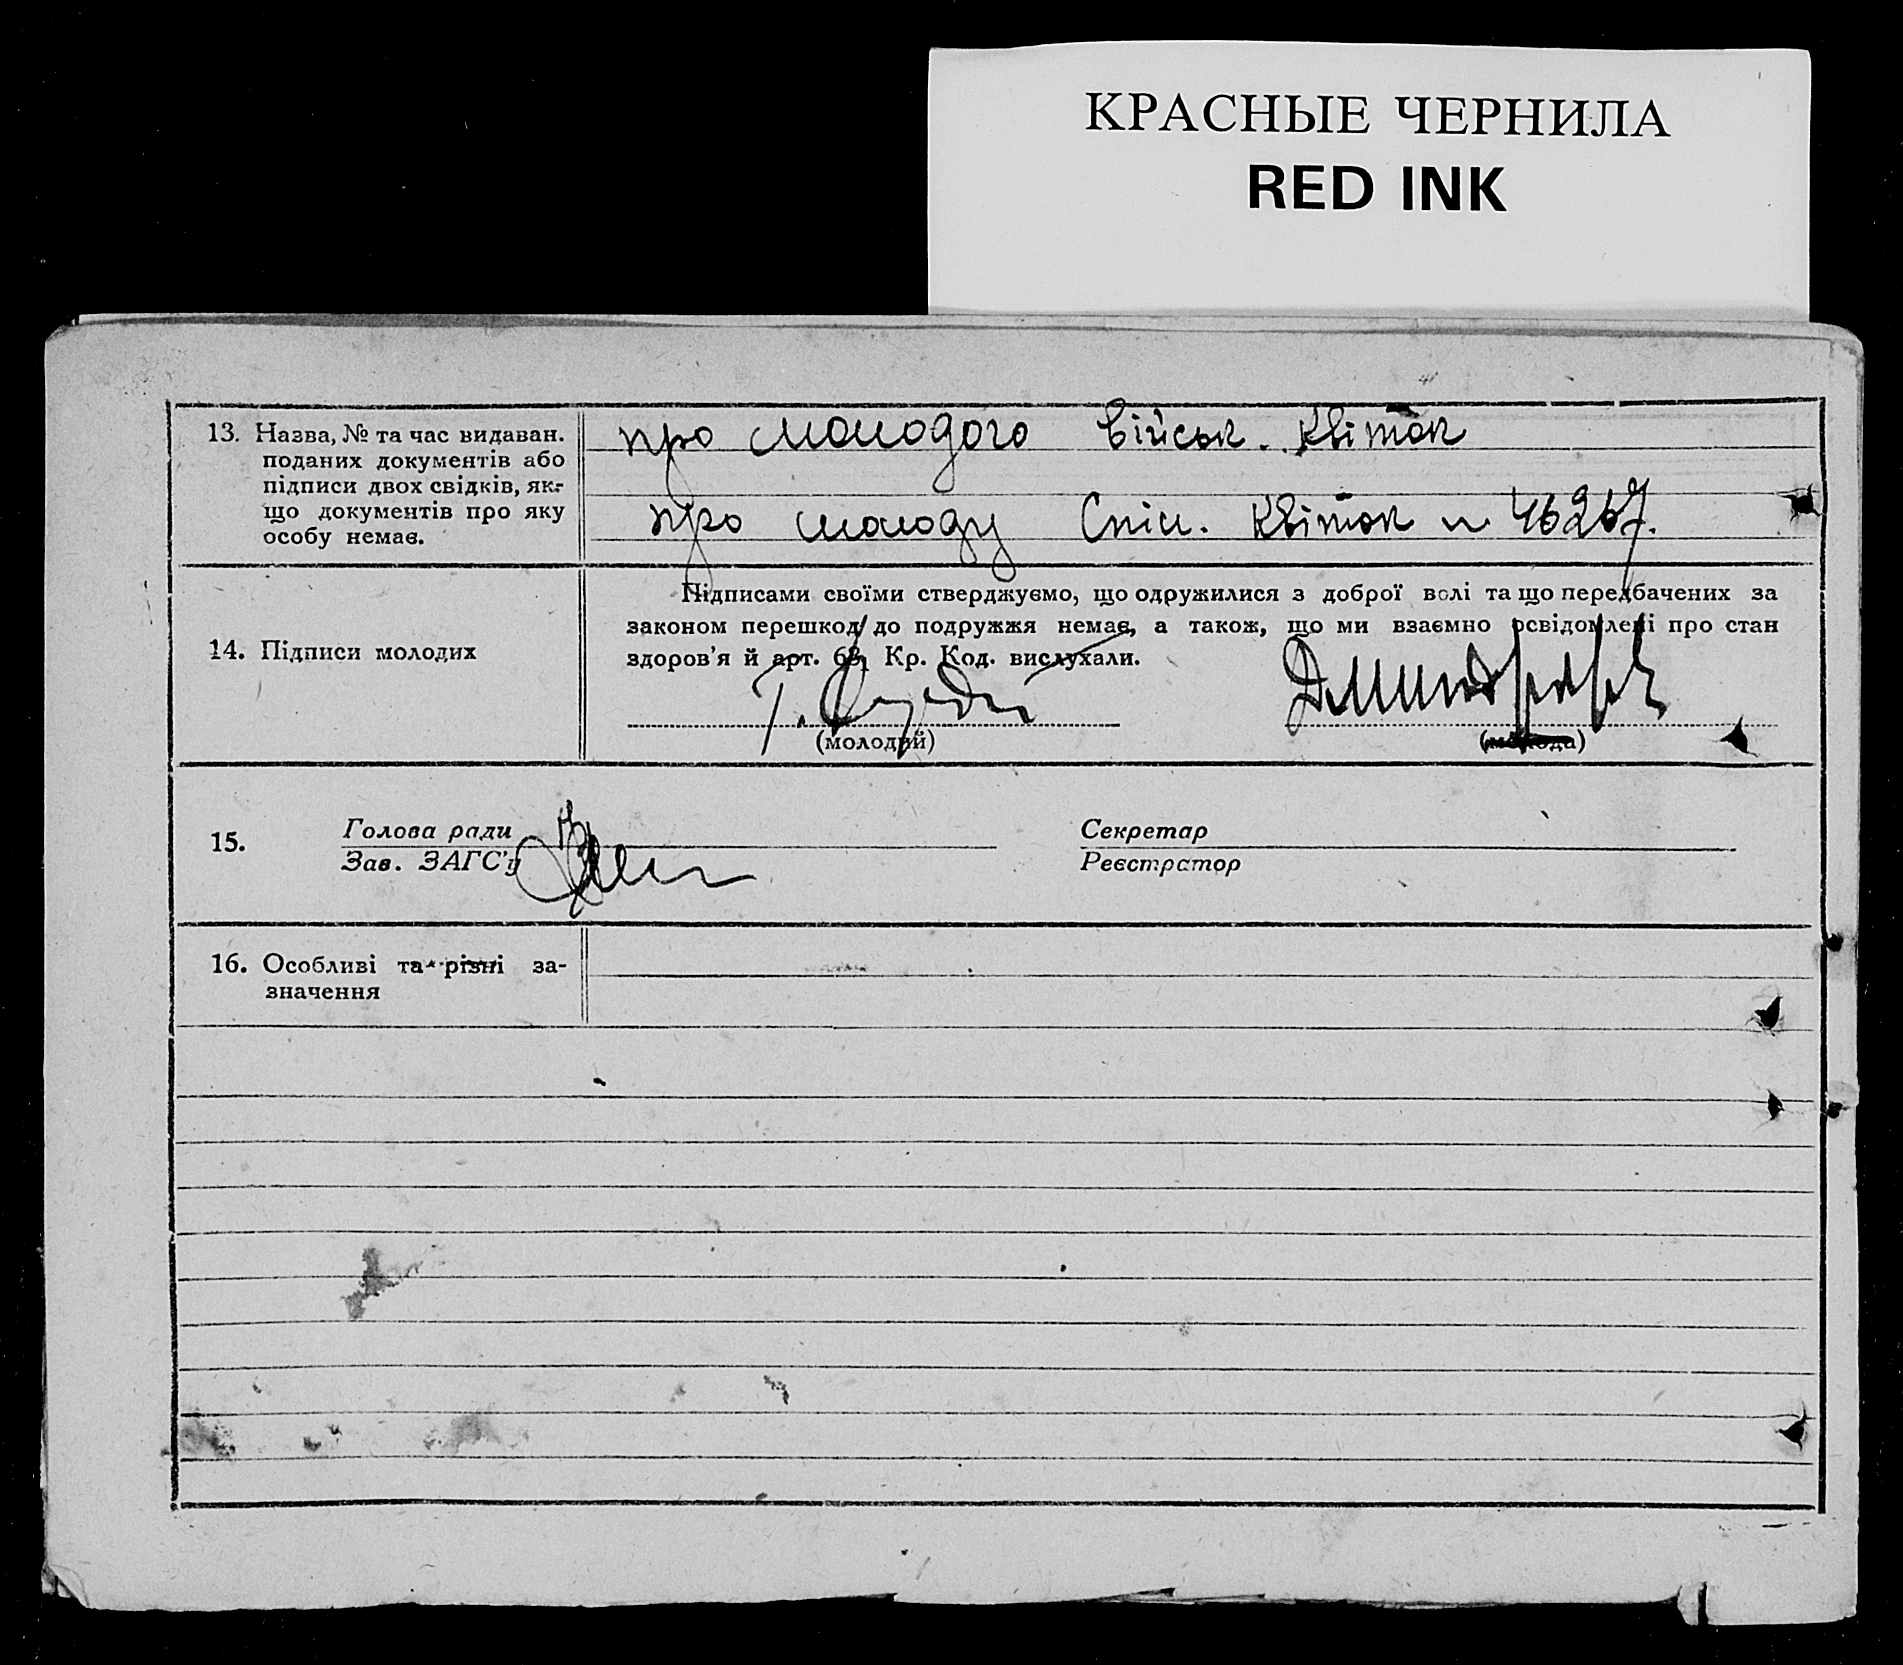 КРАСНЫЕ ЧЕРНИЛА
RED INK
13. Назва, № та час видаван.
поданих документів або
підписи двох свідків, як-
що документів про яку
особу немає.
про молодого Військ. Квіток
про молоду Спіл. Квіток № 46267.
14. Підписи молодих
Підписами своїми стверджуємо, що одружилися з доброї волі та що передбачених за
законом перешкод до подружжя немає, а також, що ми взаємно освідомлені про стан
здоров'я й арт. 63, Кр. Код. вислухали.
(молодий)
(молода)
15.
Голова ради
Зав. ЗАГС'у
Секретар
Реєстратор
16. Особливі та різні за-
значення